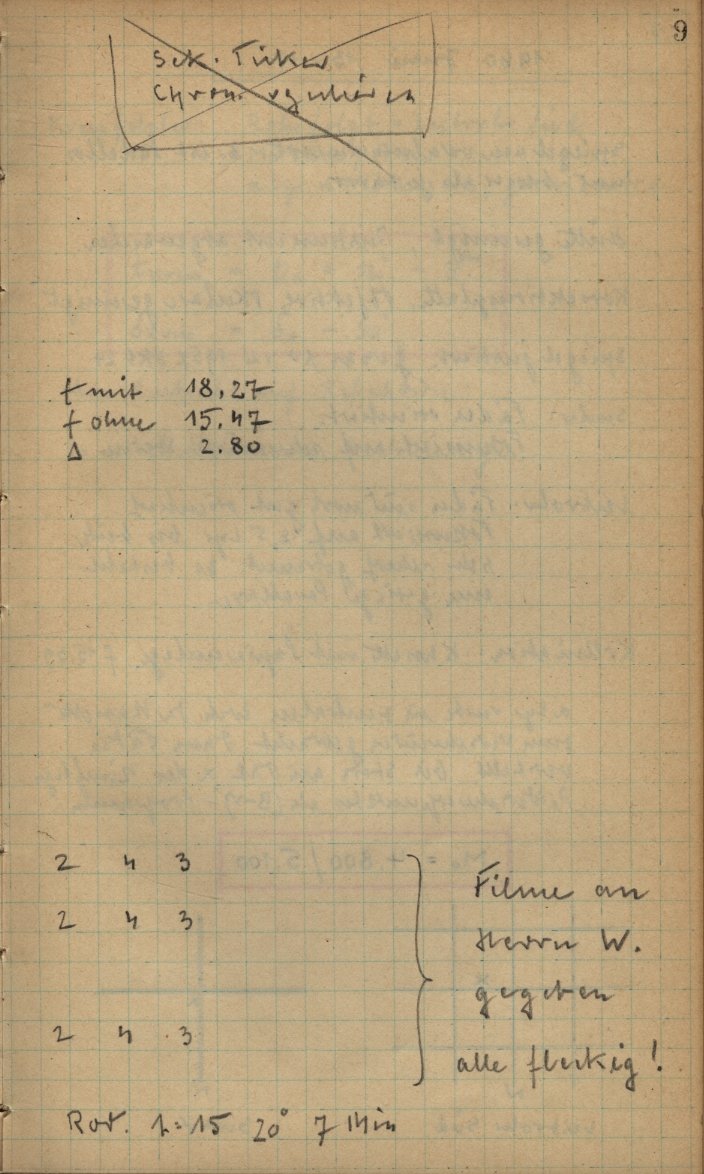 9
Sek. Ticker
Chron. regulieren
f mit 18,27
f ohne 15.47
Δ 2.80
2 4 3
2 4 3
2 4 3
Filme an
Herrn W.
gegeben
alle fleckig!
Rot. 1:15 20° 7 Min